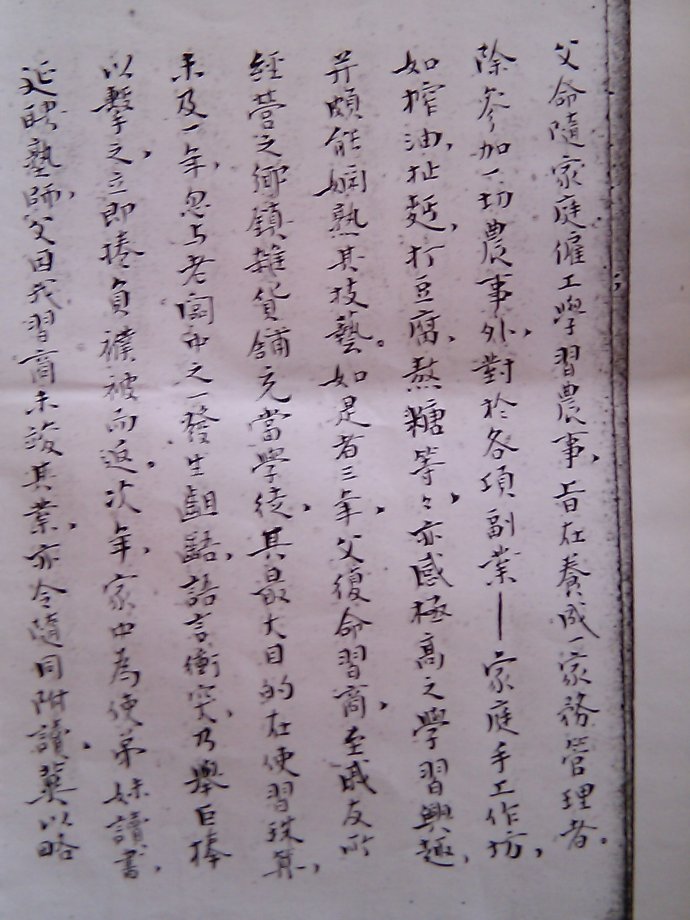 父命隨家庭僱工學習農事，旨在養成一家務管理者。
除參加一切農事外，對於各項副業—家庭手工作坊，
如榨油，扯麵，打豆腐，熬糖等々，亦感極高之學習興趣，
并頗能嫻熟其技藝。如是者三年，父復命習商，至戚友所
經营之鄉鎮雜貨舖充當學徒，其最大目的在使習珠算，
未及一年，忽与老闆之一發生齟齬，語言衝突，乃舉巨棒
以擊之，立即捲負襆被而返。次年，家中為使弟妹讀書，
延聘塾師，父因我習商未竣其業，亦令隨同附讀，冀以略